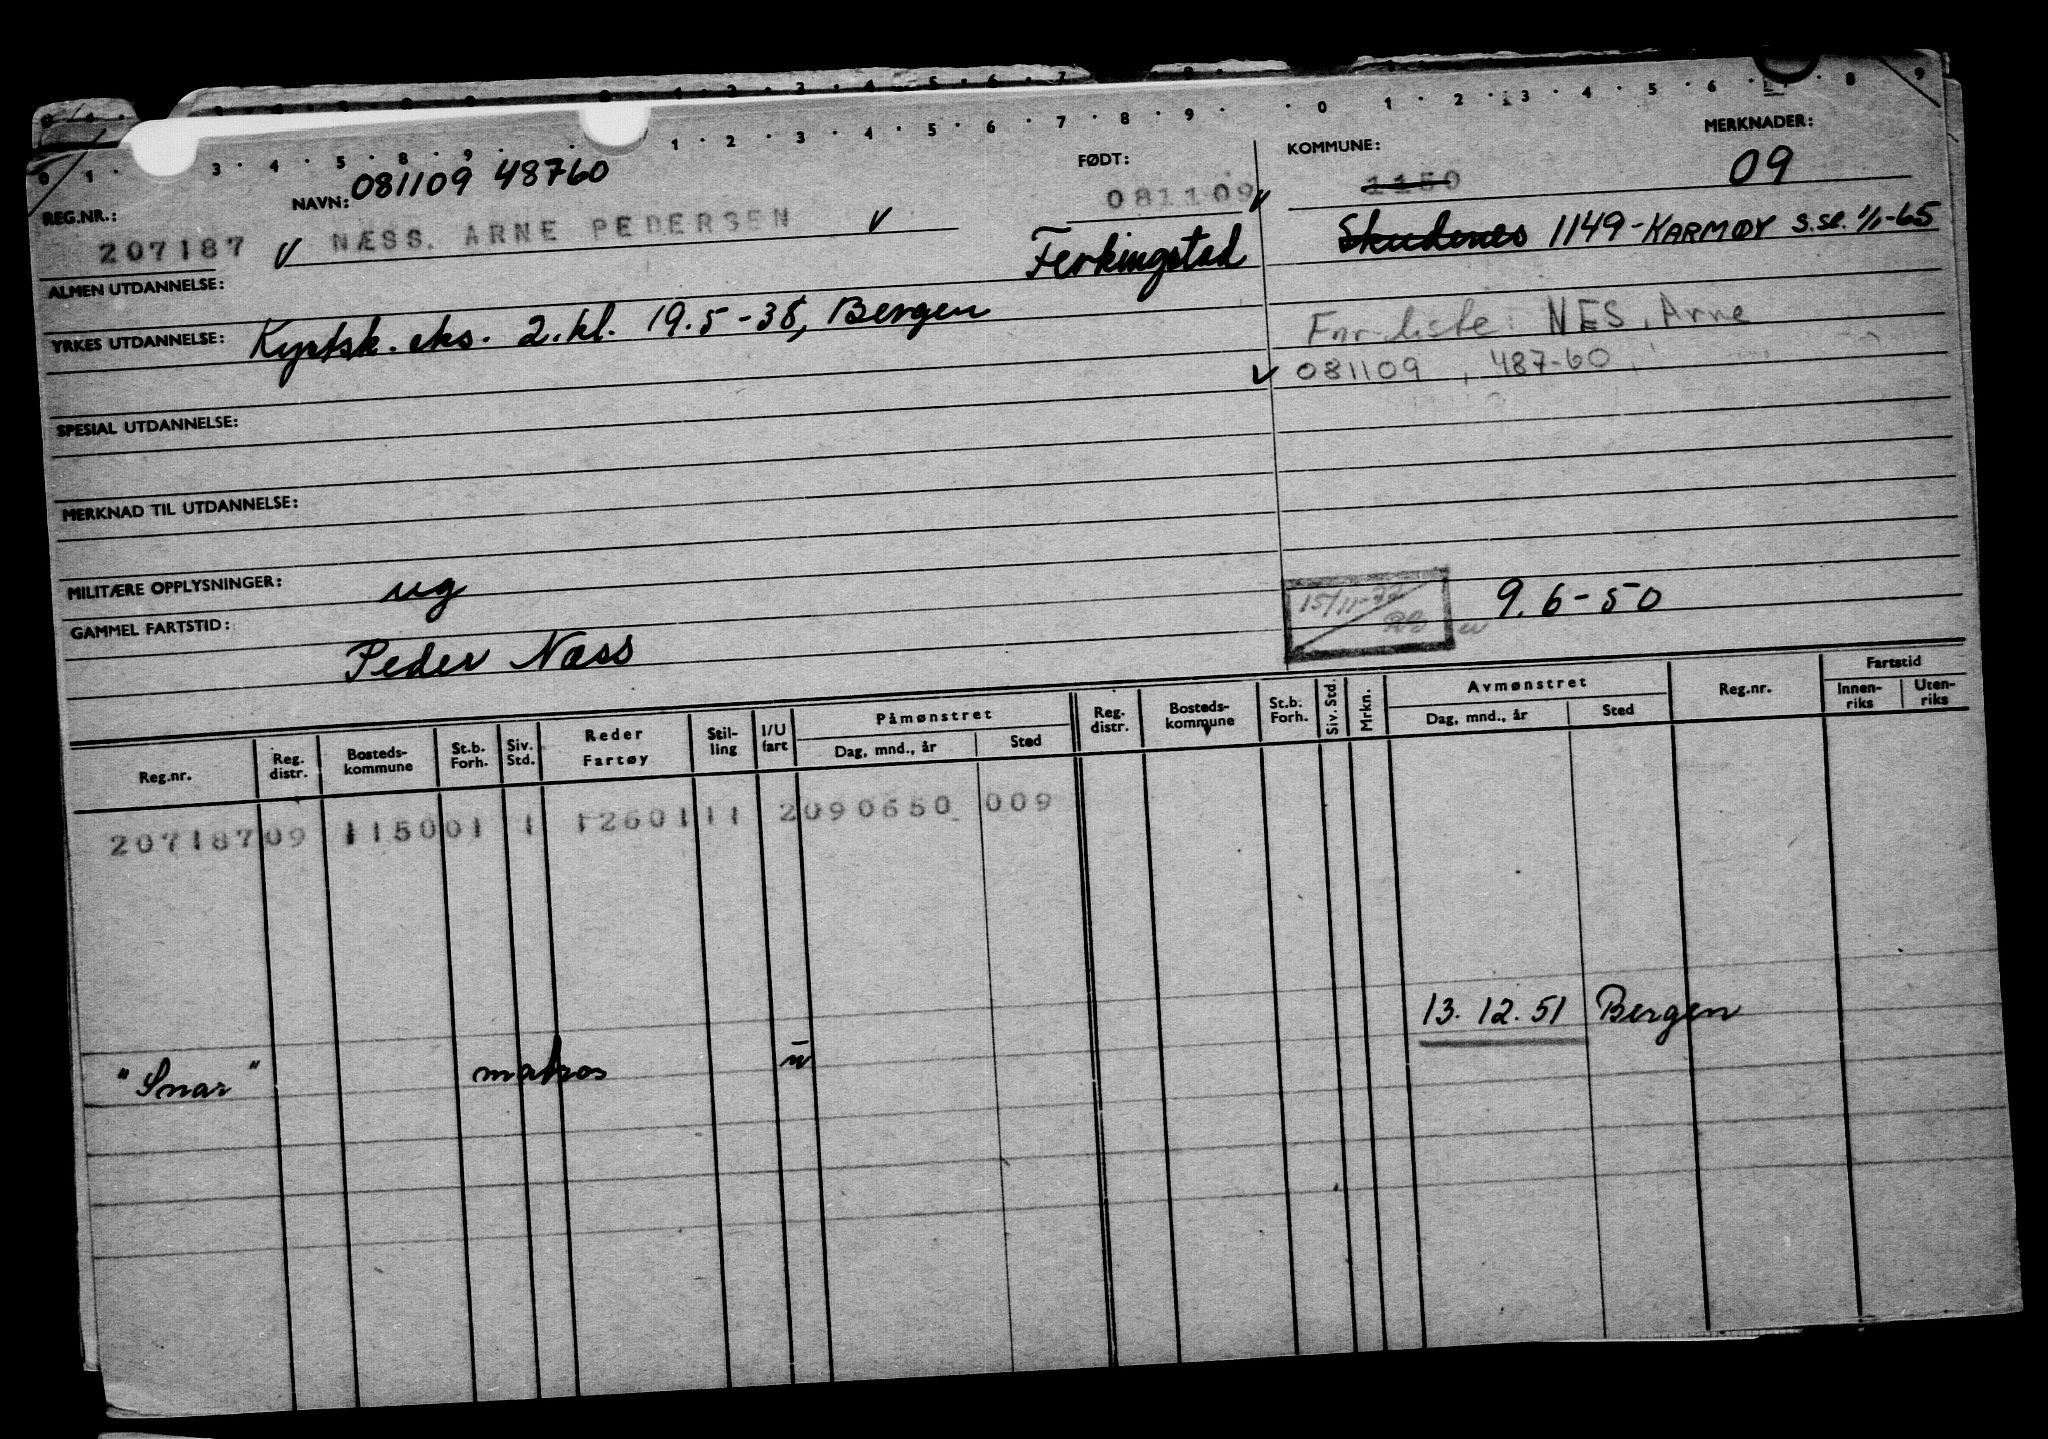 REG.NR.:
NAVN: 081109 48760
FØDT:
KOMMUNE:
MERKNADER:
207187
NÆSS. ARNE PEDERSEN
081109
1150
09
Ferkingstad
Skudenes 1149-KARMØY s.sl. 1/1-65
ALMEN UTDANNELSE:
YRKES UTDANNELSE: Kystsk. eks. 2. kl. 19.5-38, Bergen
Fnr. liste: NES, Arne
081109, 487-60
SPESIAL UTDANNELSE:
MERKNAD TIL UTDANNELSE:
MILITÆRE OPPLYSNINGER: ug
15/11-72
9.6-50
GAMMEL FARTSTID:
Peder Næss
Reg.nr.
Reg. distr.
Bosteds-kommune
St.b. Forh.
Siv. Std.
Reder
Fartøy
Stil-ling
I/U fart
Påmønstret
Dag, mnd., år
Sted
Reg. distr.
Bosteds-kommune
St.b. Forh.
Siv. Std.
Mrkn.
Avmønstret
Dag, mnd., år
Sted
Reg.nr.
Fartstid
Innen-riks
Uten-riks
207187 09 1150 01 1 12601 11 2 090650 009
13.12.51 Bergen
"Snar" matros u